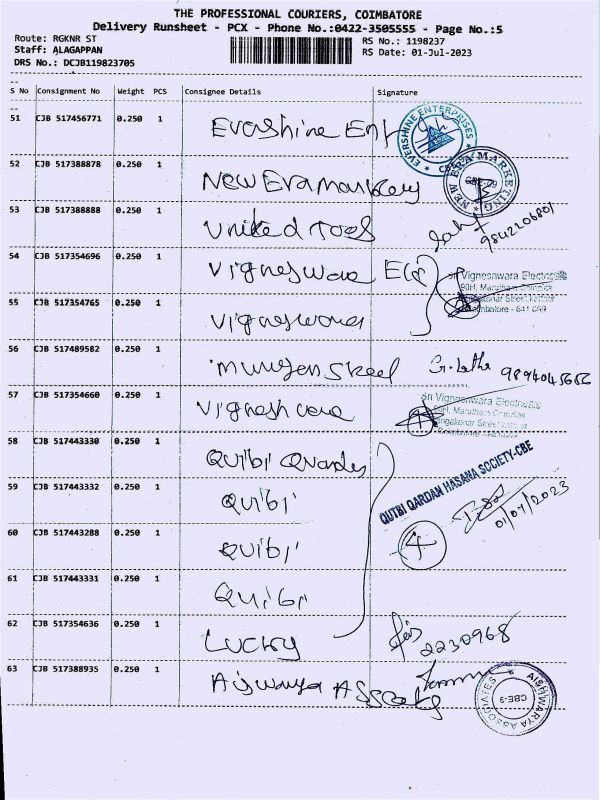 THE PROFESSIONAL COURIERS, COIMBATORE
Delivery Runsheet - PCX - Phone No.:0422-3505555 - Page No.:5
Route: RGKNR ST
RS No.: 1198237
Staff: ALAGAPPAN
RS Date: 01-Jul-2023
DRS No.: DCJB119823705
S No Consignment No Weight PCS Consignee Details Signature
51 CJB 517456771 0.250 1 Evershine Ent
EVERSHINE ENTERPRISES
52 CJB 517388878 0.250 1 New Era
NEW ERA MARKETING
53 CJB 517388888 0.250 1 United Tools
9842206801
54 CJB 517354696 0.250 1 Vigneswara
Sri Vigneshwara Electricals
55 CJB 517354765 0.250 1
56 CJB 517489582 0.250 1 Murugan Steel G. Latha 9894045652
57 CJB 517354660 0.250 1
Sri Vigneshwara
58 CJB 517443330 0.250 1 Qutbi
QUTBI QARDAN HASANA SOCIETY-CBE
59 CJB 517443332 0.250 1 Qutbi
01/07/2023
60 CJB 517443288 0.250 1 Qutbi
4
61 CJB 517443331 0.250 1 Qutbi
62 CJB 517354636 0.250 1 Lucky
2230968
63 CJB 517388935 0.250 1
AISHWARYA ASSOCIATES
CBE-9